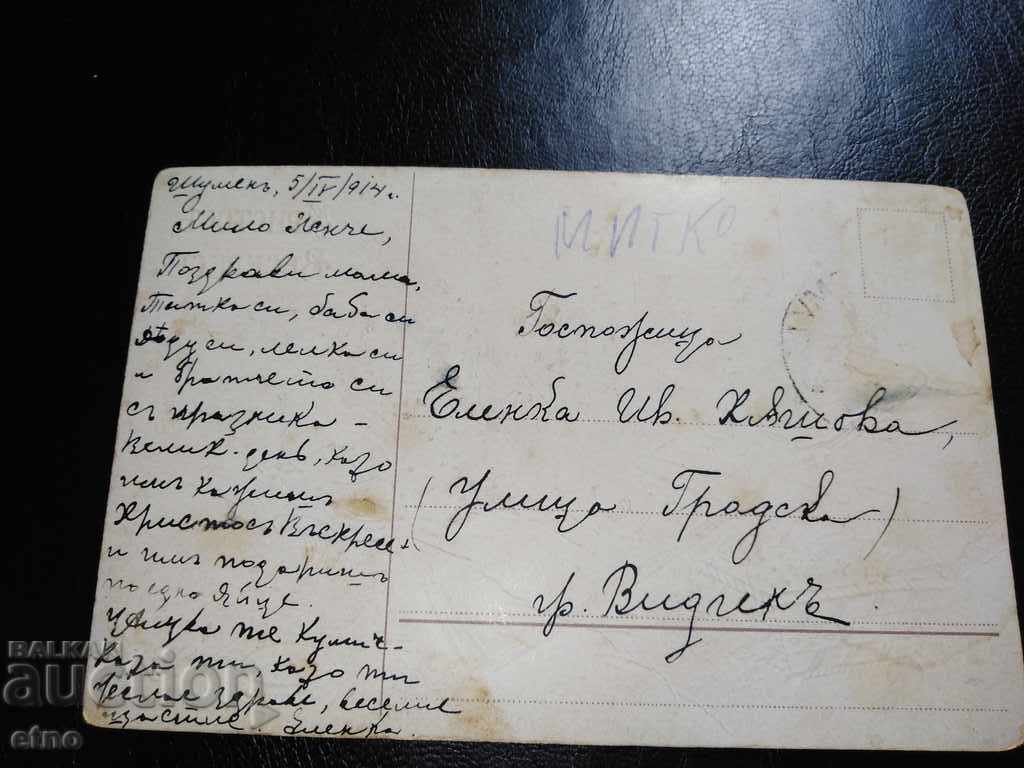 Шуменъ, 5/IV/914 г.
Мило Ленче,
Поздрави мама,
татка си, баба си
дяду си, лелка си
и братчето си
съ празника –
Велик-день, като
имъ кажишъ
Христосъ Възкресе
и имъ подаришъ
по едно яйце.
Целува те Кумич-
ката ти, като ти
желае здраве, веселие
щастие. Еленка.
МИТКО
Госпожица
Еленка Ив.
(Улица Градска)
гр.
ШУМ
BALKAN
auction
etno